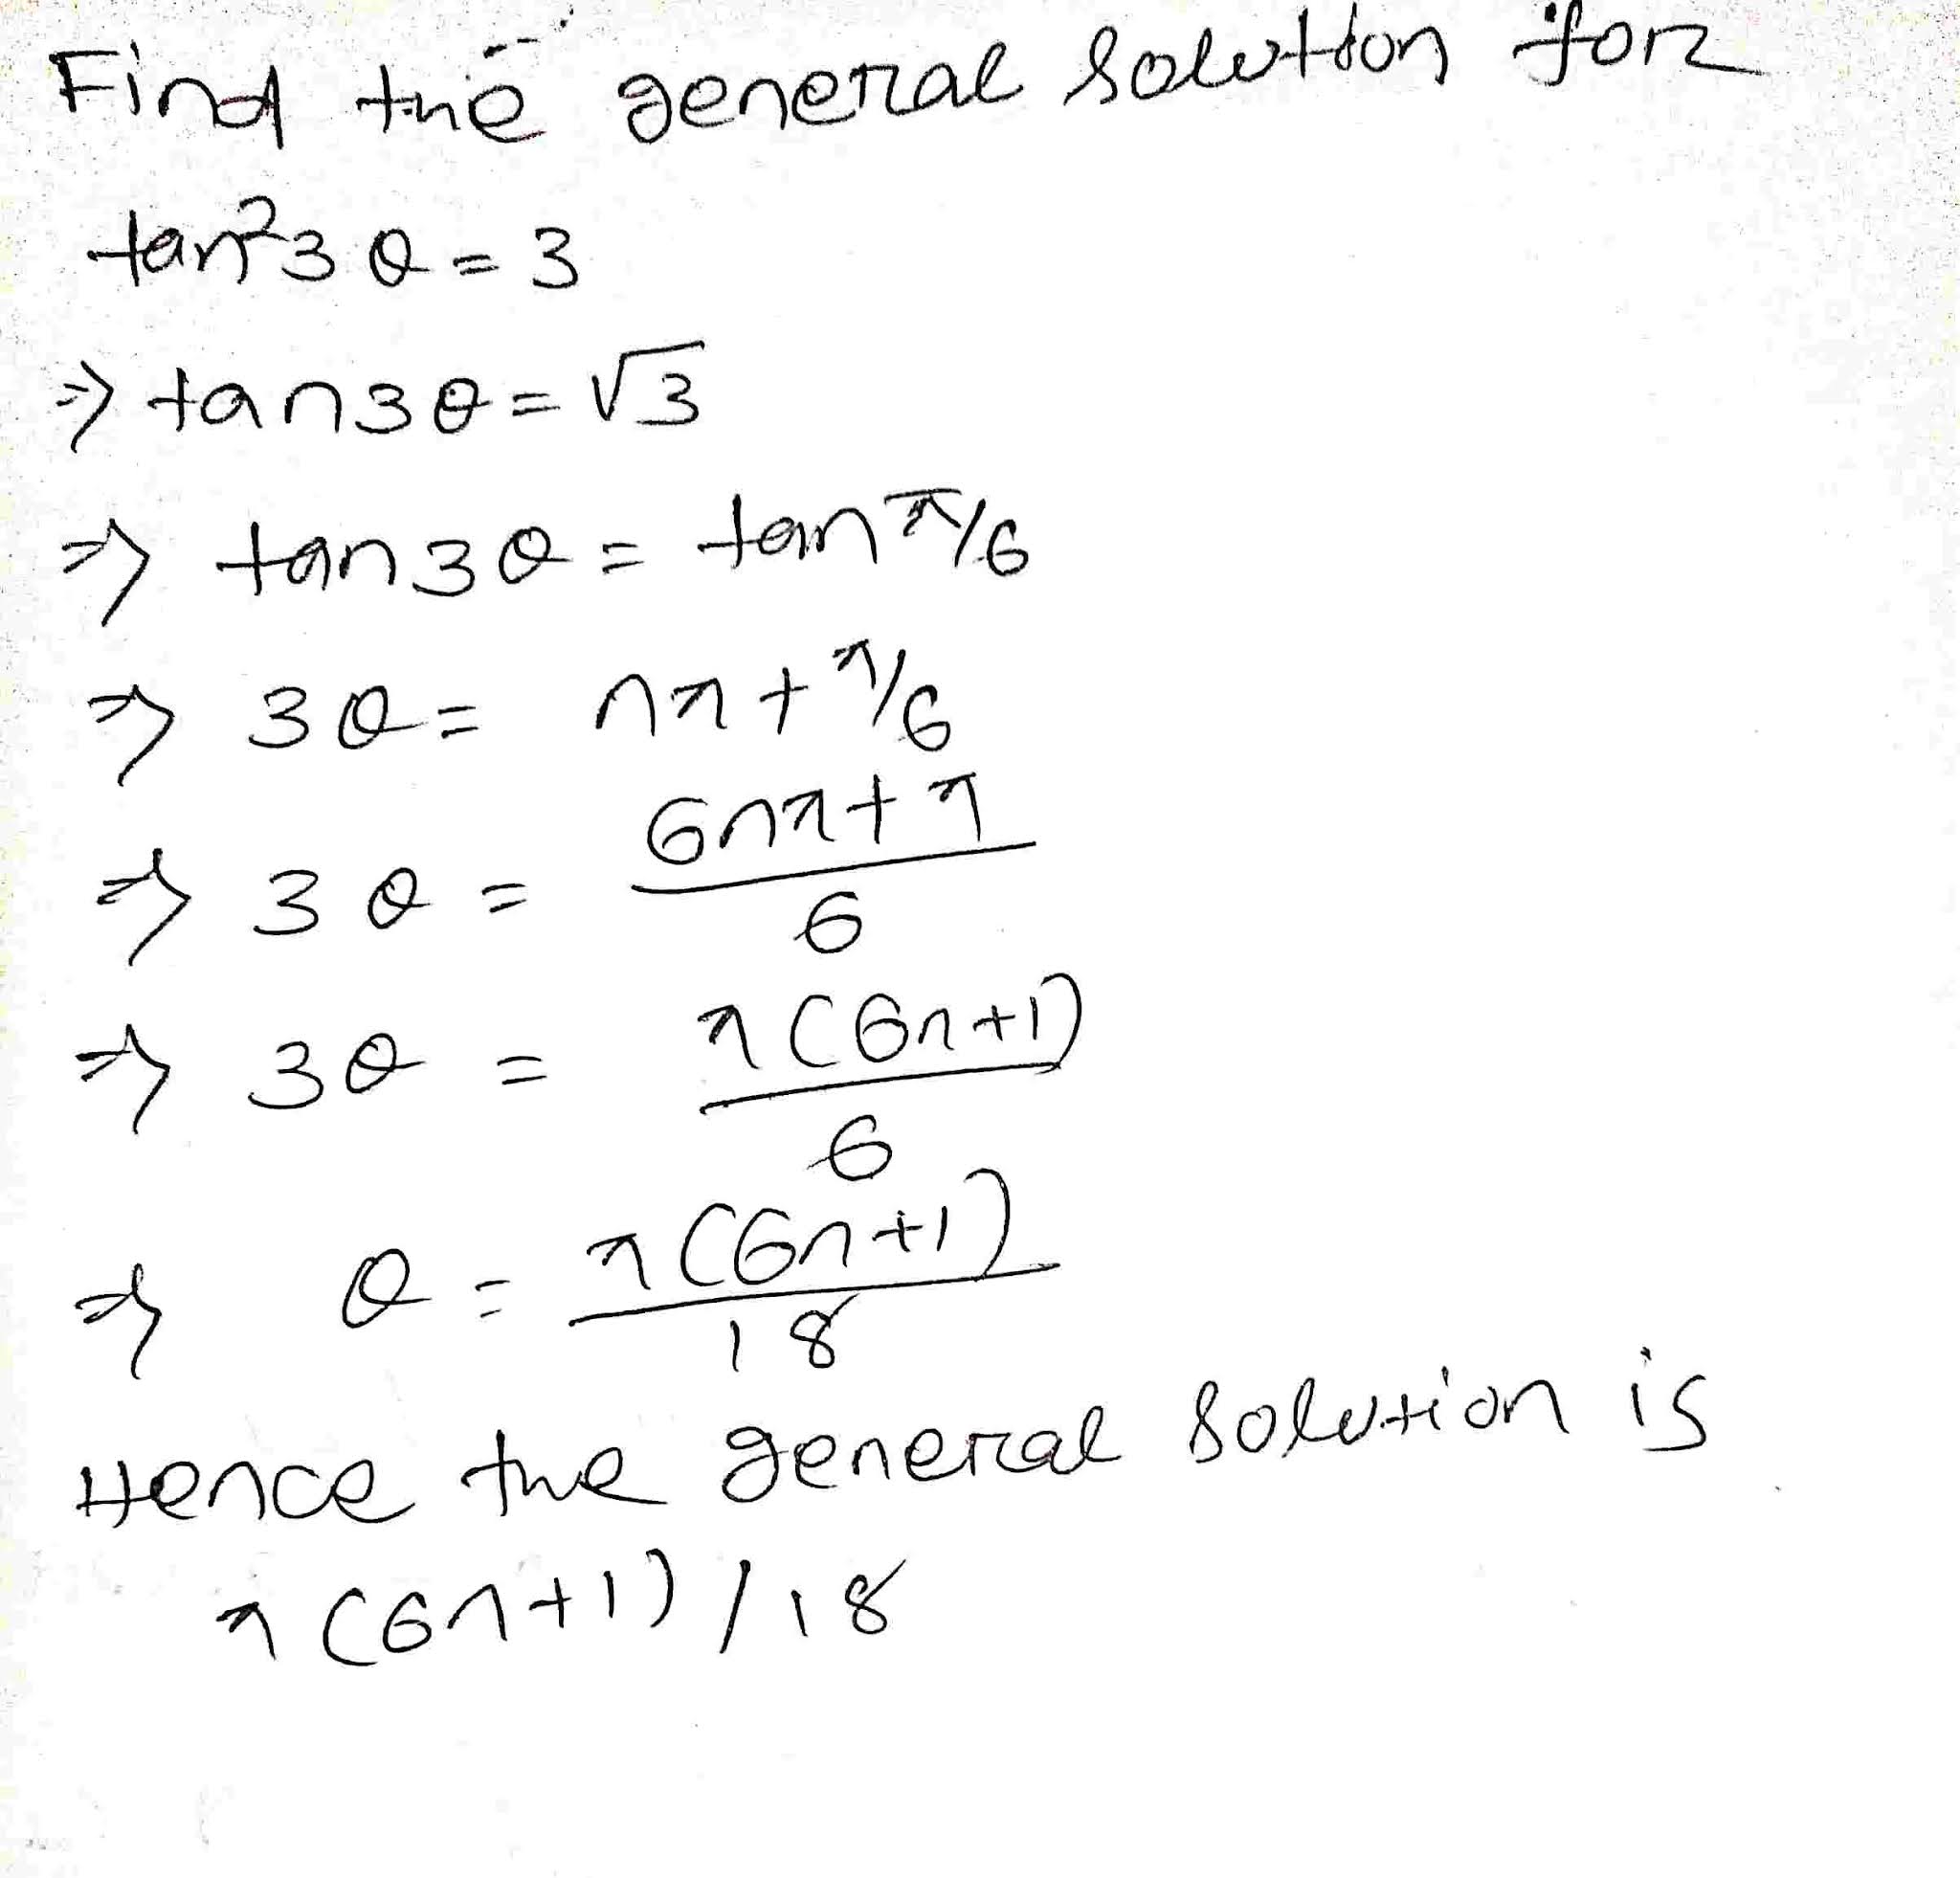 Find the general solution for
tan²3θ = 3
⇒ tan3θ = √3
⇒ tan3θ = tan π/6
⇒ 3θ = nπ + π/6
⇒ 3θ = (6nπ + π)/6
⇒ 3θ = π(6n+1)/6
⇒ θ = π(6n+1)/18
Hence the general solution is
π(6n+1)/18